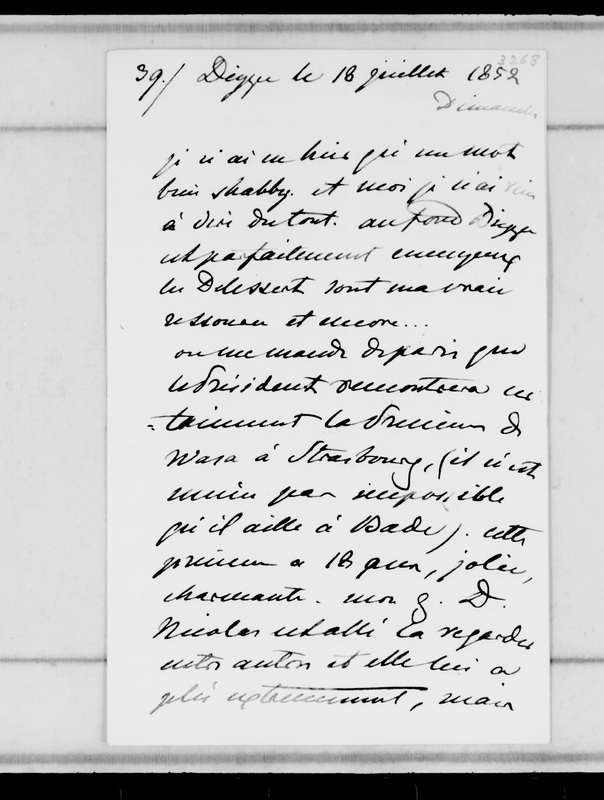 3268
39./ Dieppe le 18 juillet 1852
Dimanche
je n'ai eu hier qu'un mot
bien shabby. et moi je n'ai rien
à dire du tout. au fond Dieppe
est parfaitement ennuyeux
les Delessert sont ma vraie
ressource et encore...
on me mande de paris que
le Président rencontrera cer
=tainement la Princesse de
Wasa à Strasbourg, (il n'est
même pas impossible
qu'il aille à Bade). cette
princesse a 18 ans, jolie,
charmante. mon g. D.
Nicolas est allé la regarder
cet autom et elle lui a
plu extrêmement, mais